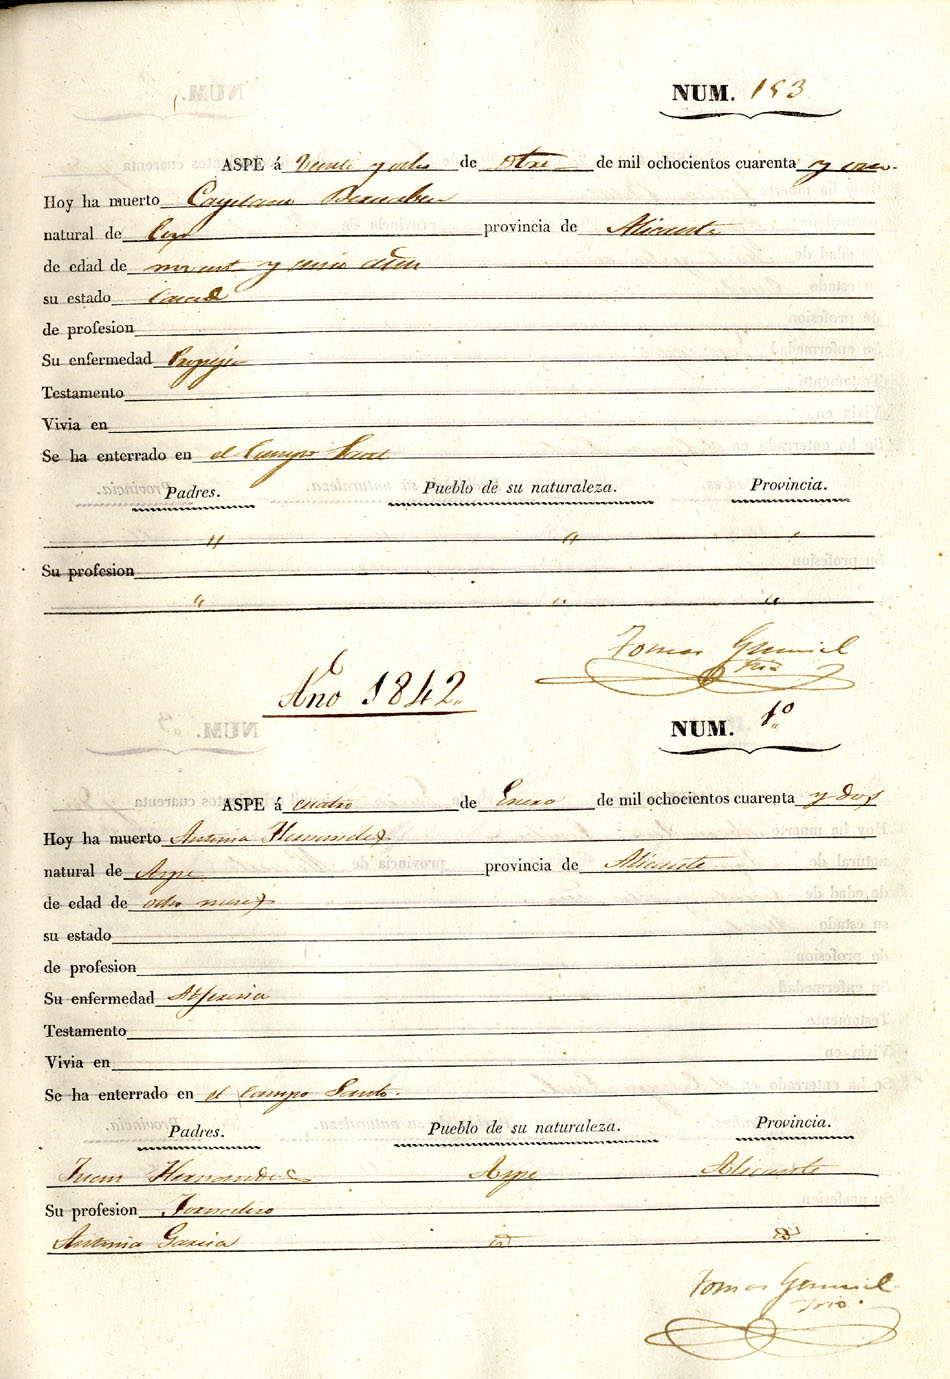 NUM. 153
ASPE á Veinte y ocho de de mil ochocientos cuarenta y uno.
Hoy ha muerto Cayetano Bernabeu
natural de provincia de Alicante
de edad de y cinco años
su estado Casado
de profesion
Su enfermedad
Testamento
Vivia en
Se ha enterrado en el Campo Santo
Padres. Pueblo de su naturaleza. Provincia.
" " "
Su profesion
" " "
Tomas
Año 1842
NUM. 1º
ASPE á cuatro de Enero de mil ochocientos cuarenta y dos
Hoy ha muerto Antonia Hernandez
natural de Aspe provincia de Alicante
de edad de ocho meses
su estado
de profesion
Su enfermedad Alferecia
Testamento
Vivia en
Se ha enterrado en el Campo Santo.
Padres. Pueblo de su naturaleza. Provincia.
Juan Hernandez Aspe Alicante
Su profesion Jornalero
Antonia Garcia id id
Tomas